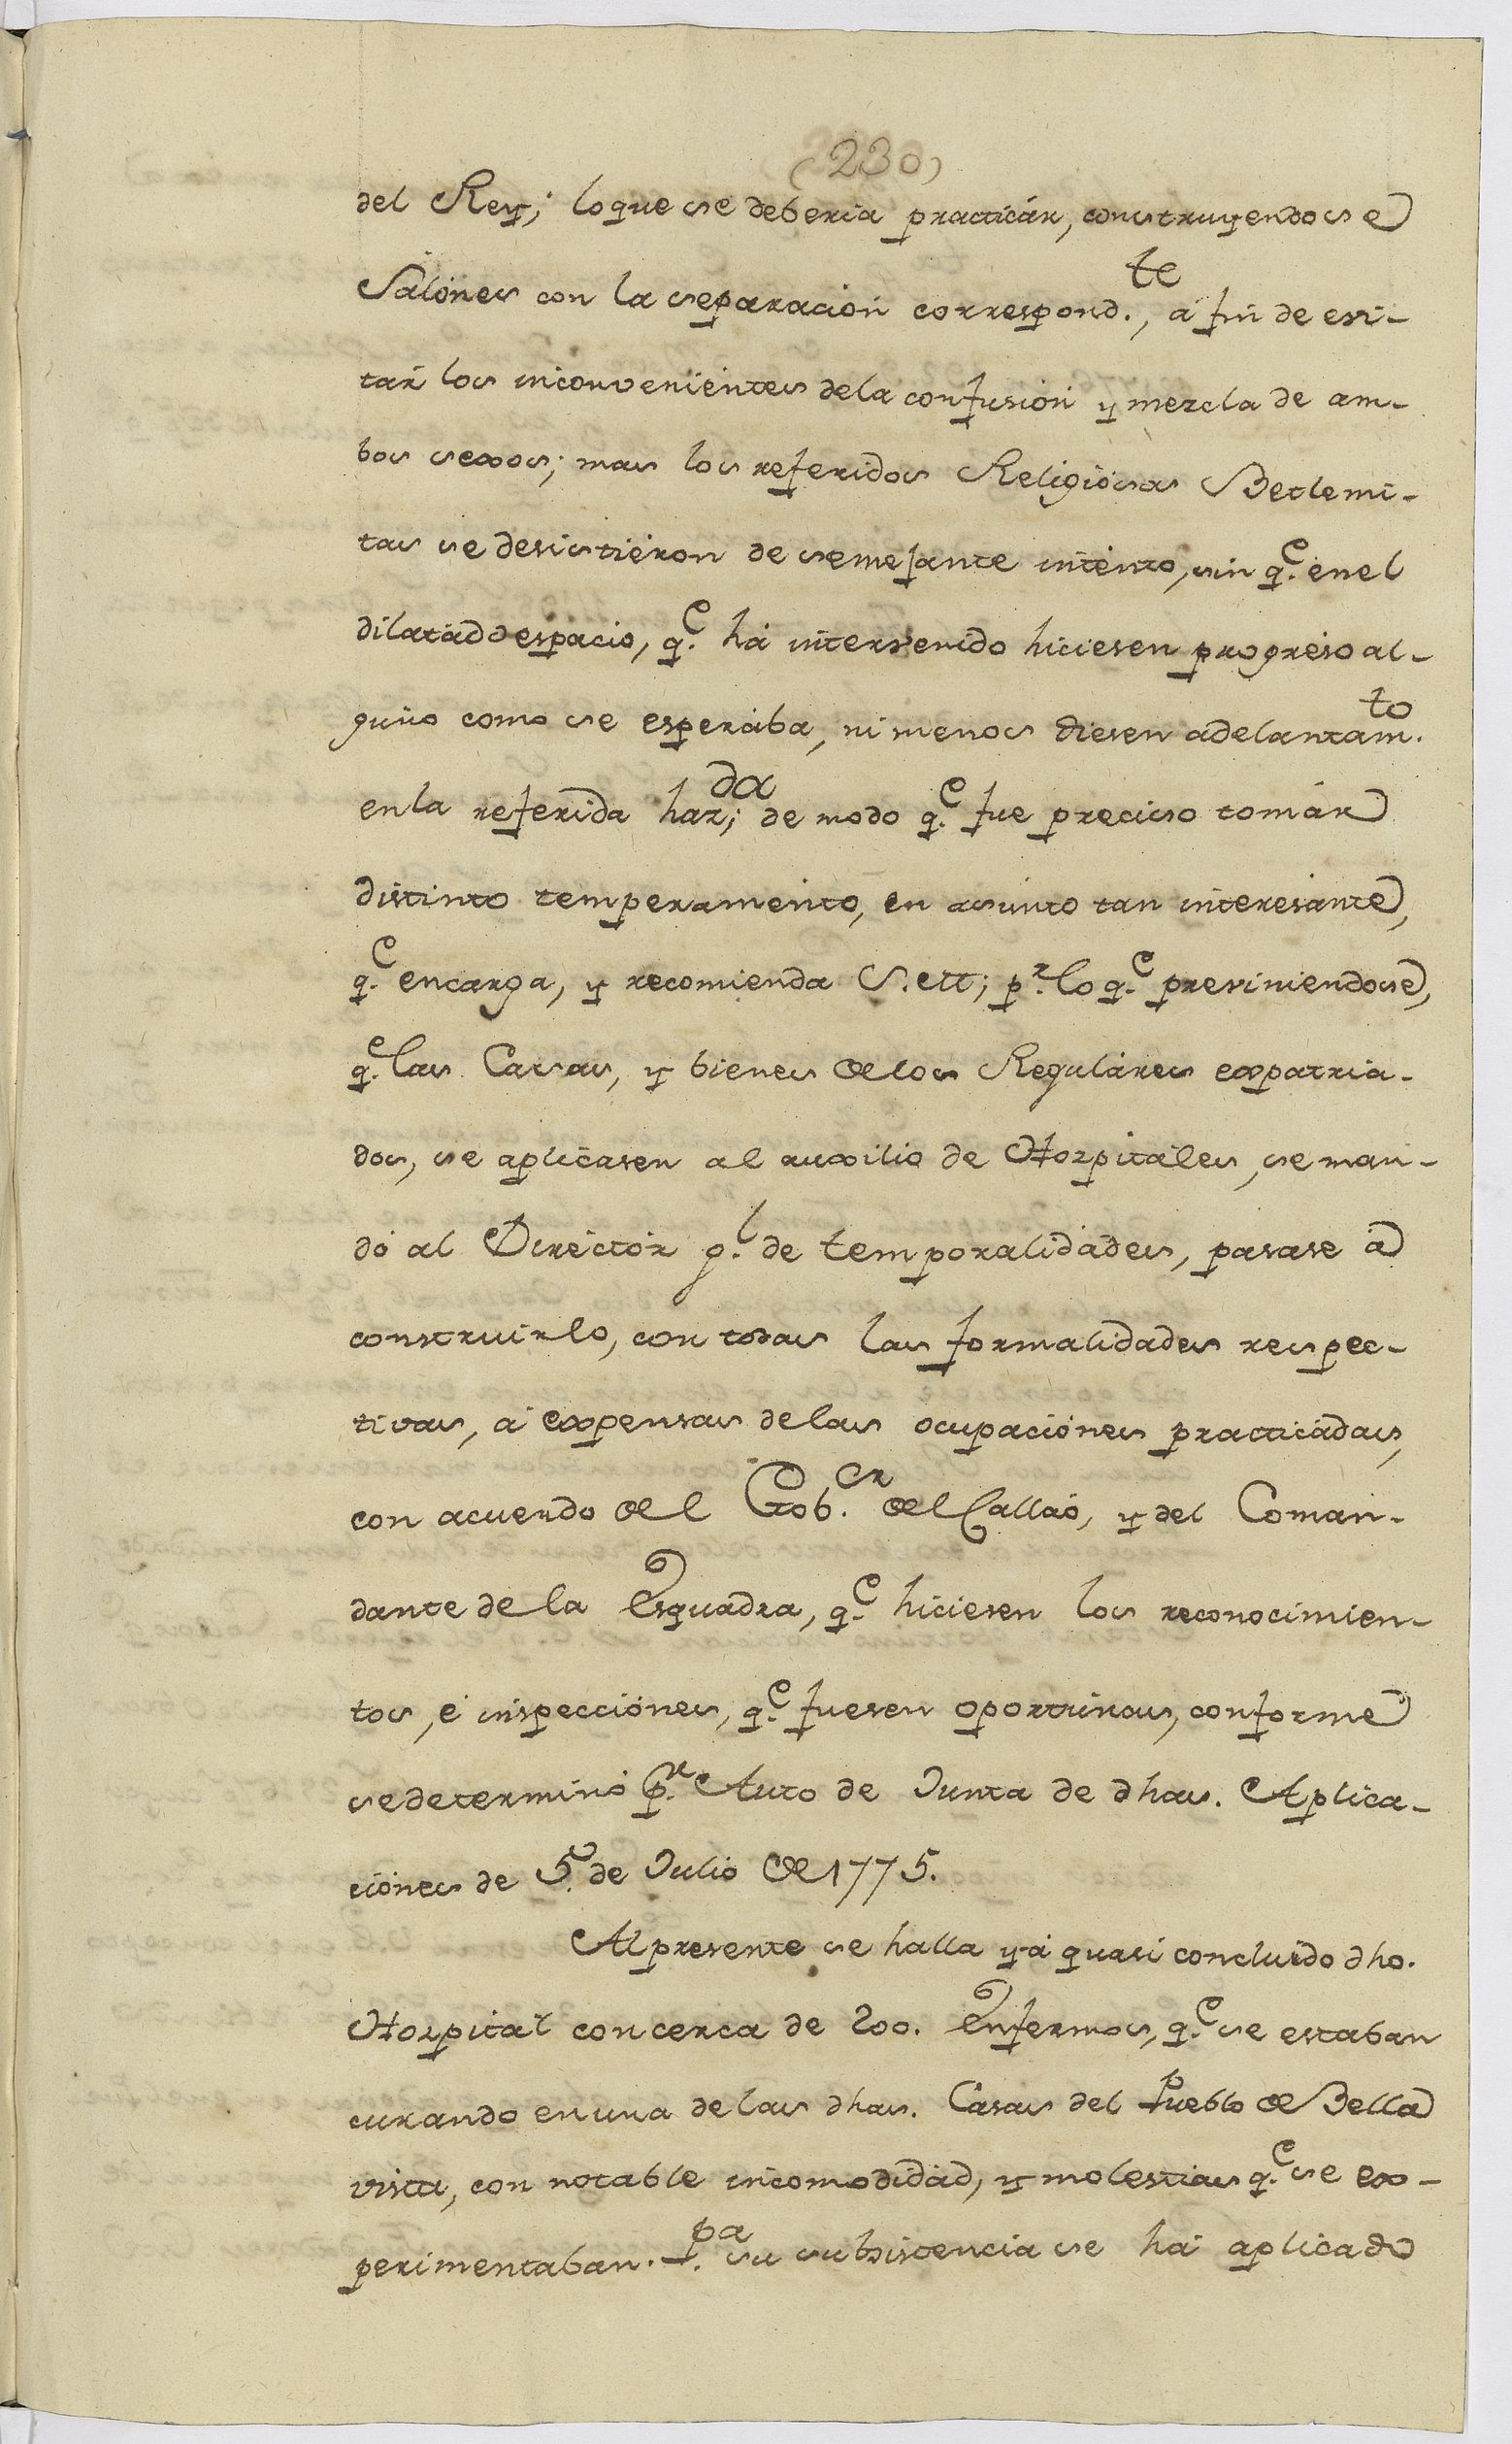 (230)
del Rey; lo que se deberia practicár, construyendose
Salónes con la separación correspond.te, á fin de evi-
tár los inconvenientes de la confusión y mezcla de am-
bos sexos; mas los referidos Religiósos Betlemi-
tas se desistiéron de semejante inténto, sin q.e en el
dilatádo espacio, q.e há intervenido hiciesen progreso al-
gúno como se esperába, ni menos diesen adelantam.to
en la referida haz.da; de modo q.e fue preciso tomár
distinto temperaménto, en asunto tan interesánte,
q.e encarga, y recomienda S. M; p.r lo q.e previniendose,
q.e las Casas, y bienes de los Reguláres expatria-
dos, se aplicasen al auxilio de Hospitáles, se man-
dó al Diréctór g.l de temporalidádes, pasase á
construirlo, con todas las formalidades respec-
tivas, á expensas de las ocupaciónes practicádas,
con acuerdo del Gob.or del Calláo, y del Coman-
dante de la Esquadra, q.e hiciesen los reconocimien-
tos, é inspecciónes, q.e fuesen oportúnas, conforme
se determinó p.r Auto de Junta de dhas. Aplica-
ciónes de 5,, de Julio de 1775.
Al presente se halla yá quasi concluido dho.
Hospital con cerca de 200. Enfermos, q.e se estaban
curando en una de las dhas. Casas del Pueblo de Bella
vista, con notable incomodidád, y molestias q.e se ex-
perimentaban. P.a su subsistencia se há aplicado